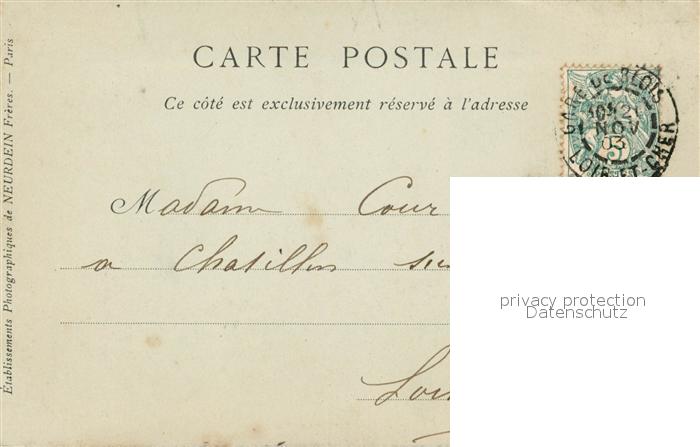 CARTE POSTALE
Ce côté est exclusivement réservé à l'adresse
GARE DE BLOIS
2
NOV
03
LOIR-ET-CHER
5
Madame Cour
a Chatillon sur
Loi
privacy protection
Datenschutz
Établissements Photographiques de NEURDEIN Frères. — Paris